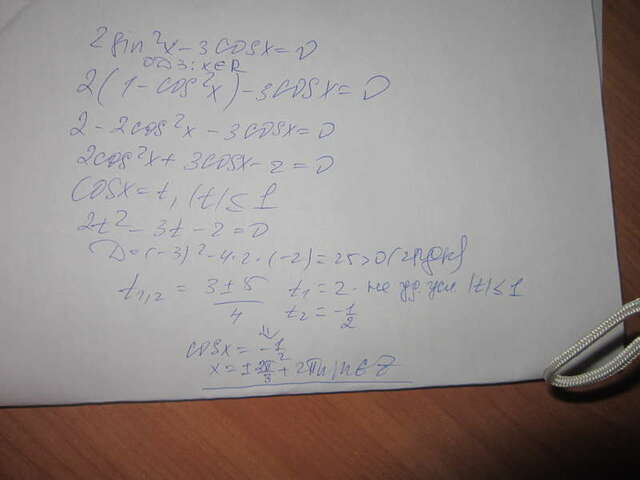 2sin²x - 3cosx = 0
ОДЗ: x∈R
2(1 - cos²x) - 3cosx = 0
2 - 2cos²x - 3cosx = 0
2cos²x + 3cosx - 2 = 0
cosx = t, |t| ≤ 1
2t² - 3t - 2 = 0
D = (-3)² - 4·2·(-2) = 25 > 0 (2 р.д.к)
t₁,₂ = (3 ± 5)/4 t₁ = 2 - не уд. усл |t| ≤ 1
t₂ = -1/2
⇓
cosx = -1/2
x = ±2π/3 + 2πn, n ∈ Z